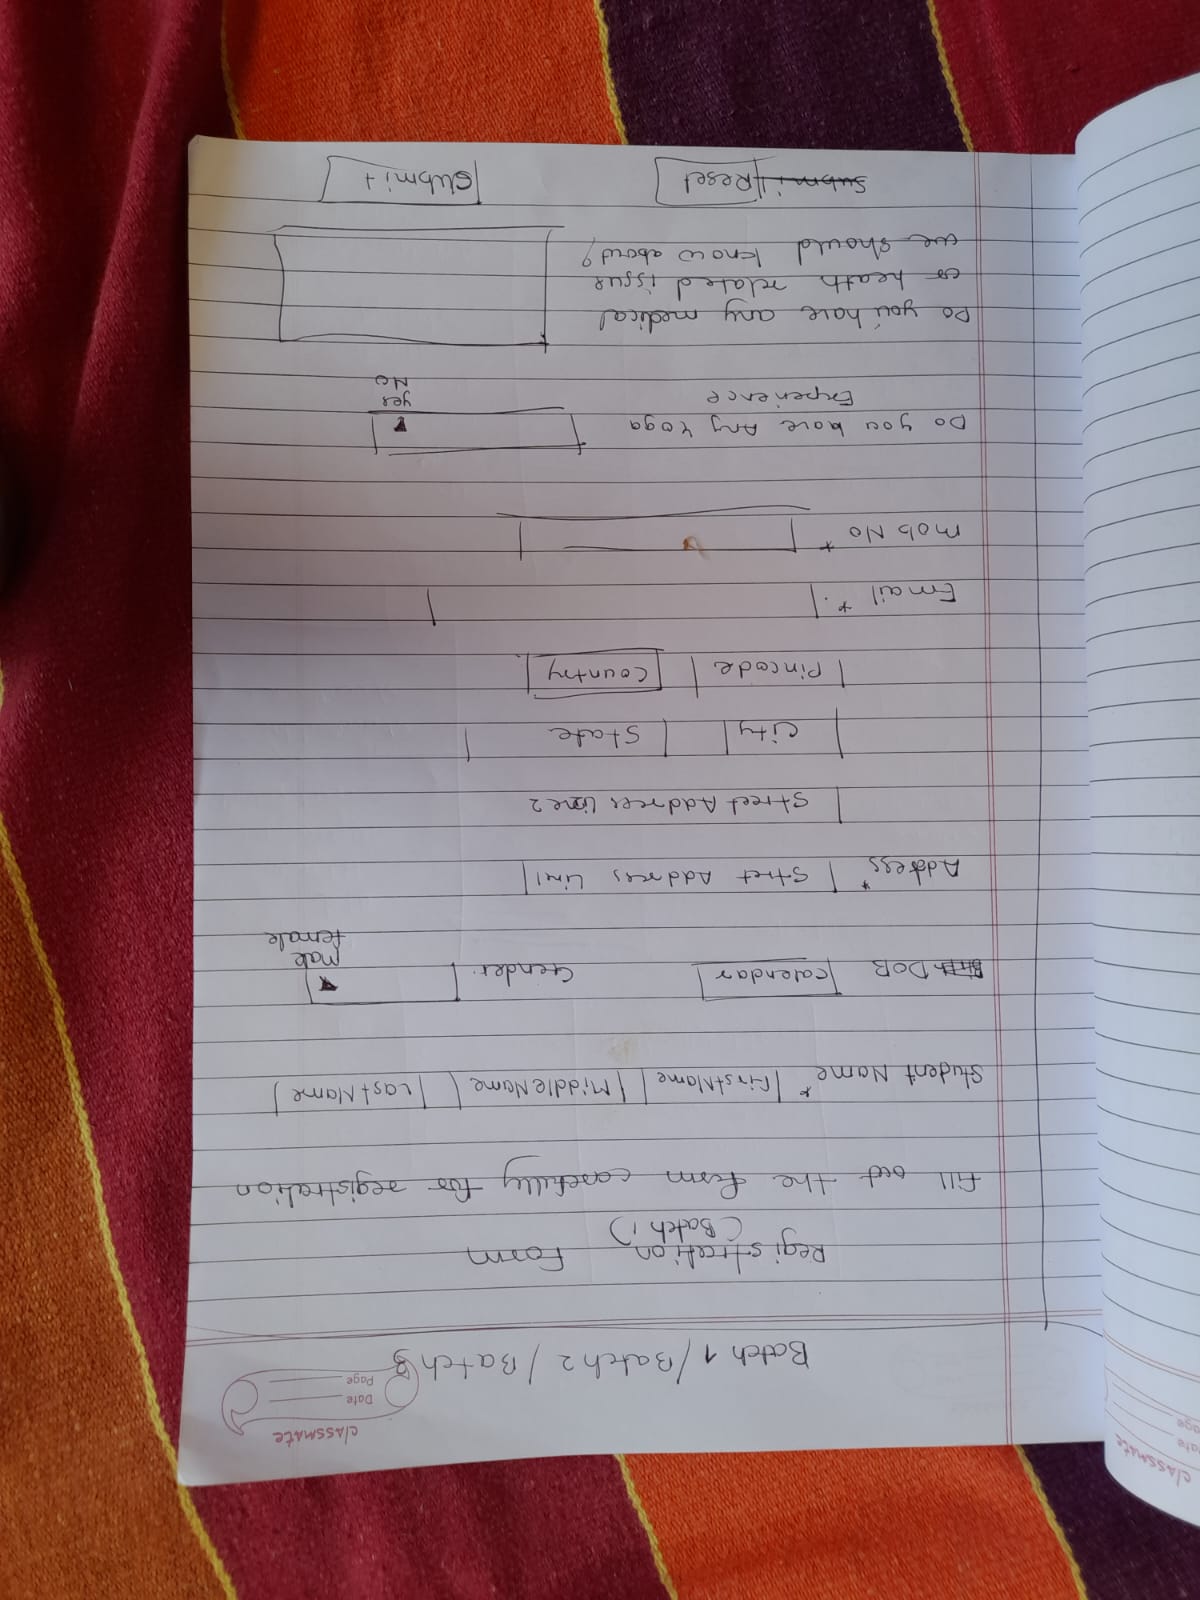 classmate
ate
age
classmate
Date
Page
Batch 1 / Batch 2 / Batch 3
Registration Form
(Batch 1)
fill out the form carefully for registration
Student Name* FirstName Middle Name Last Name
DOB calendar Gender.
male
female
Address* Stret Address Line1
Street Address Line 2
City State
Pincode Country
Email *.
Mob No *
Do you have Any Yoga
Experience
yes
No
Do you have any medical
or heath related issue
we should know about?
Submit Reset Submit